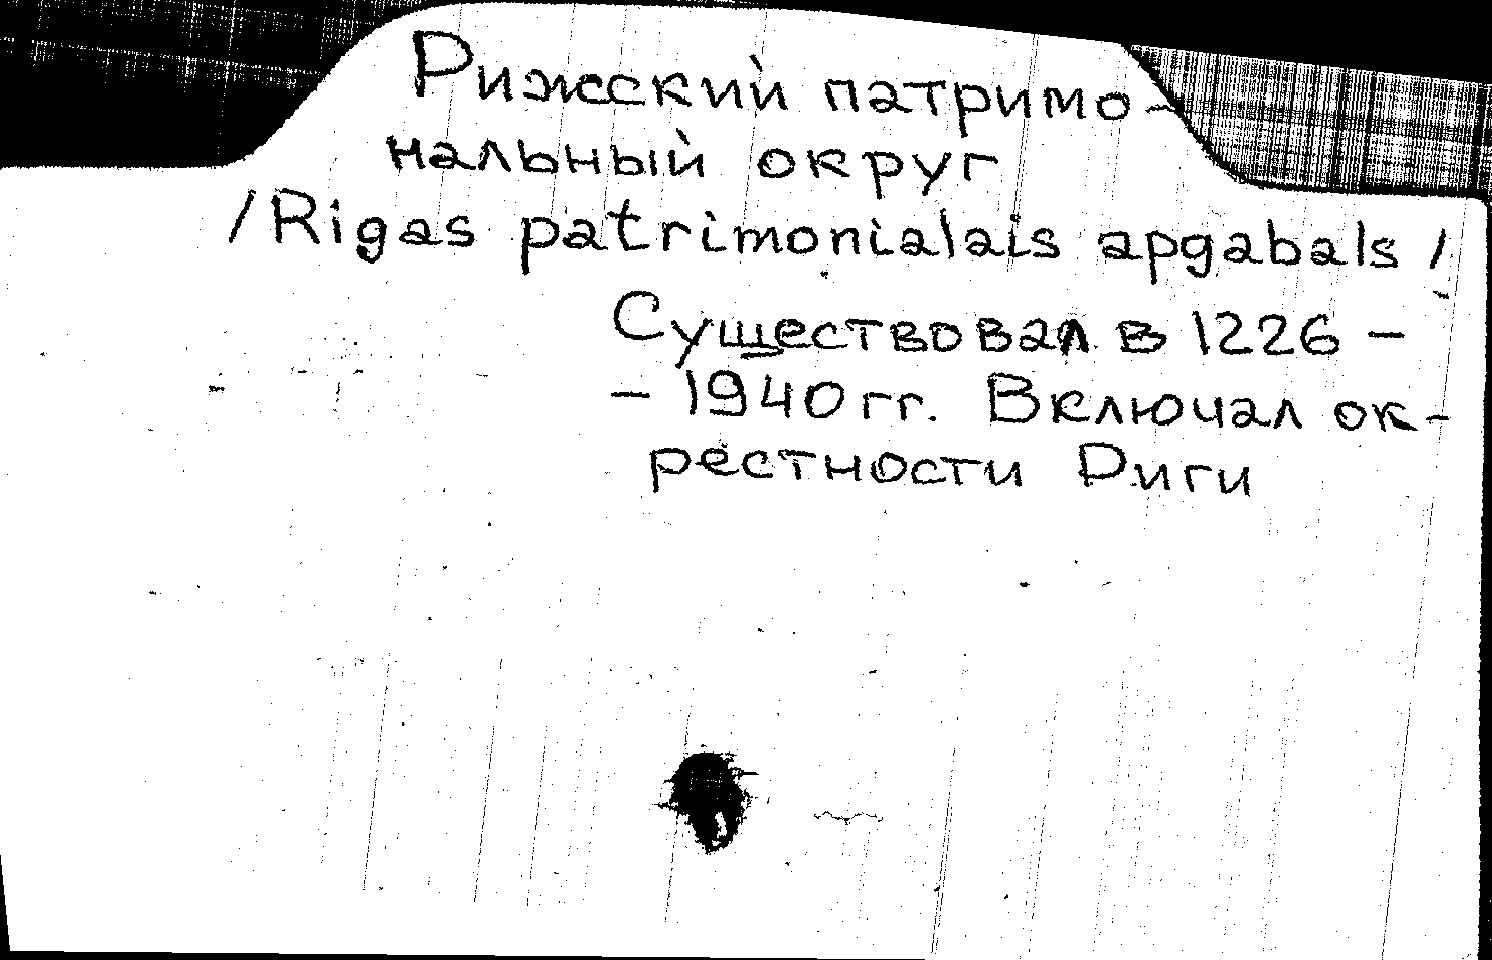 Рижский патримо-
нальный округ
/Rigas patrimonialais apgabals/
Существовал в 1226 -
- 1940 гг. Включал ок-
рестности Риги